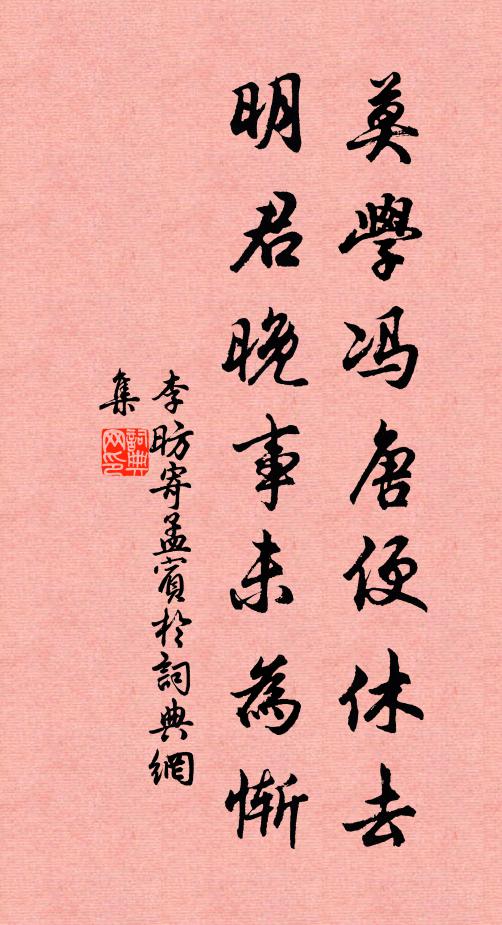 莫學冯唐便休去
明君晚事未為慚
李昉寄孟賓於詞典網
集
詞典网印